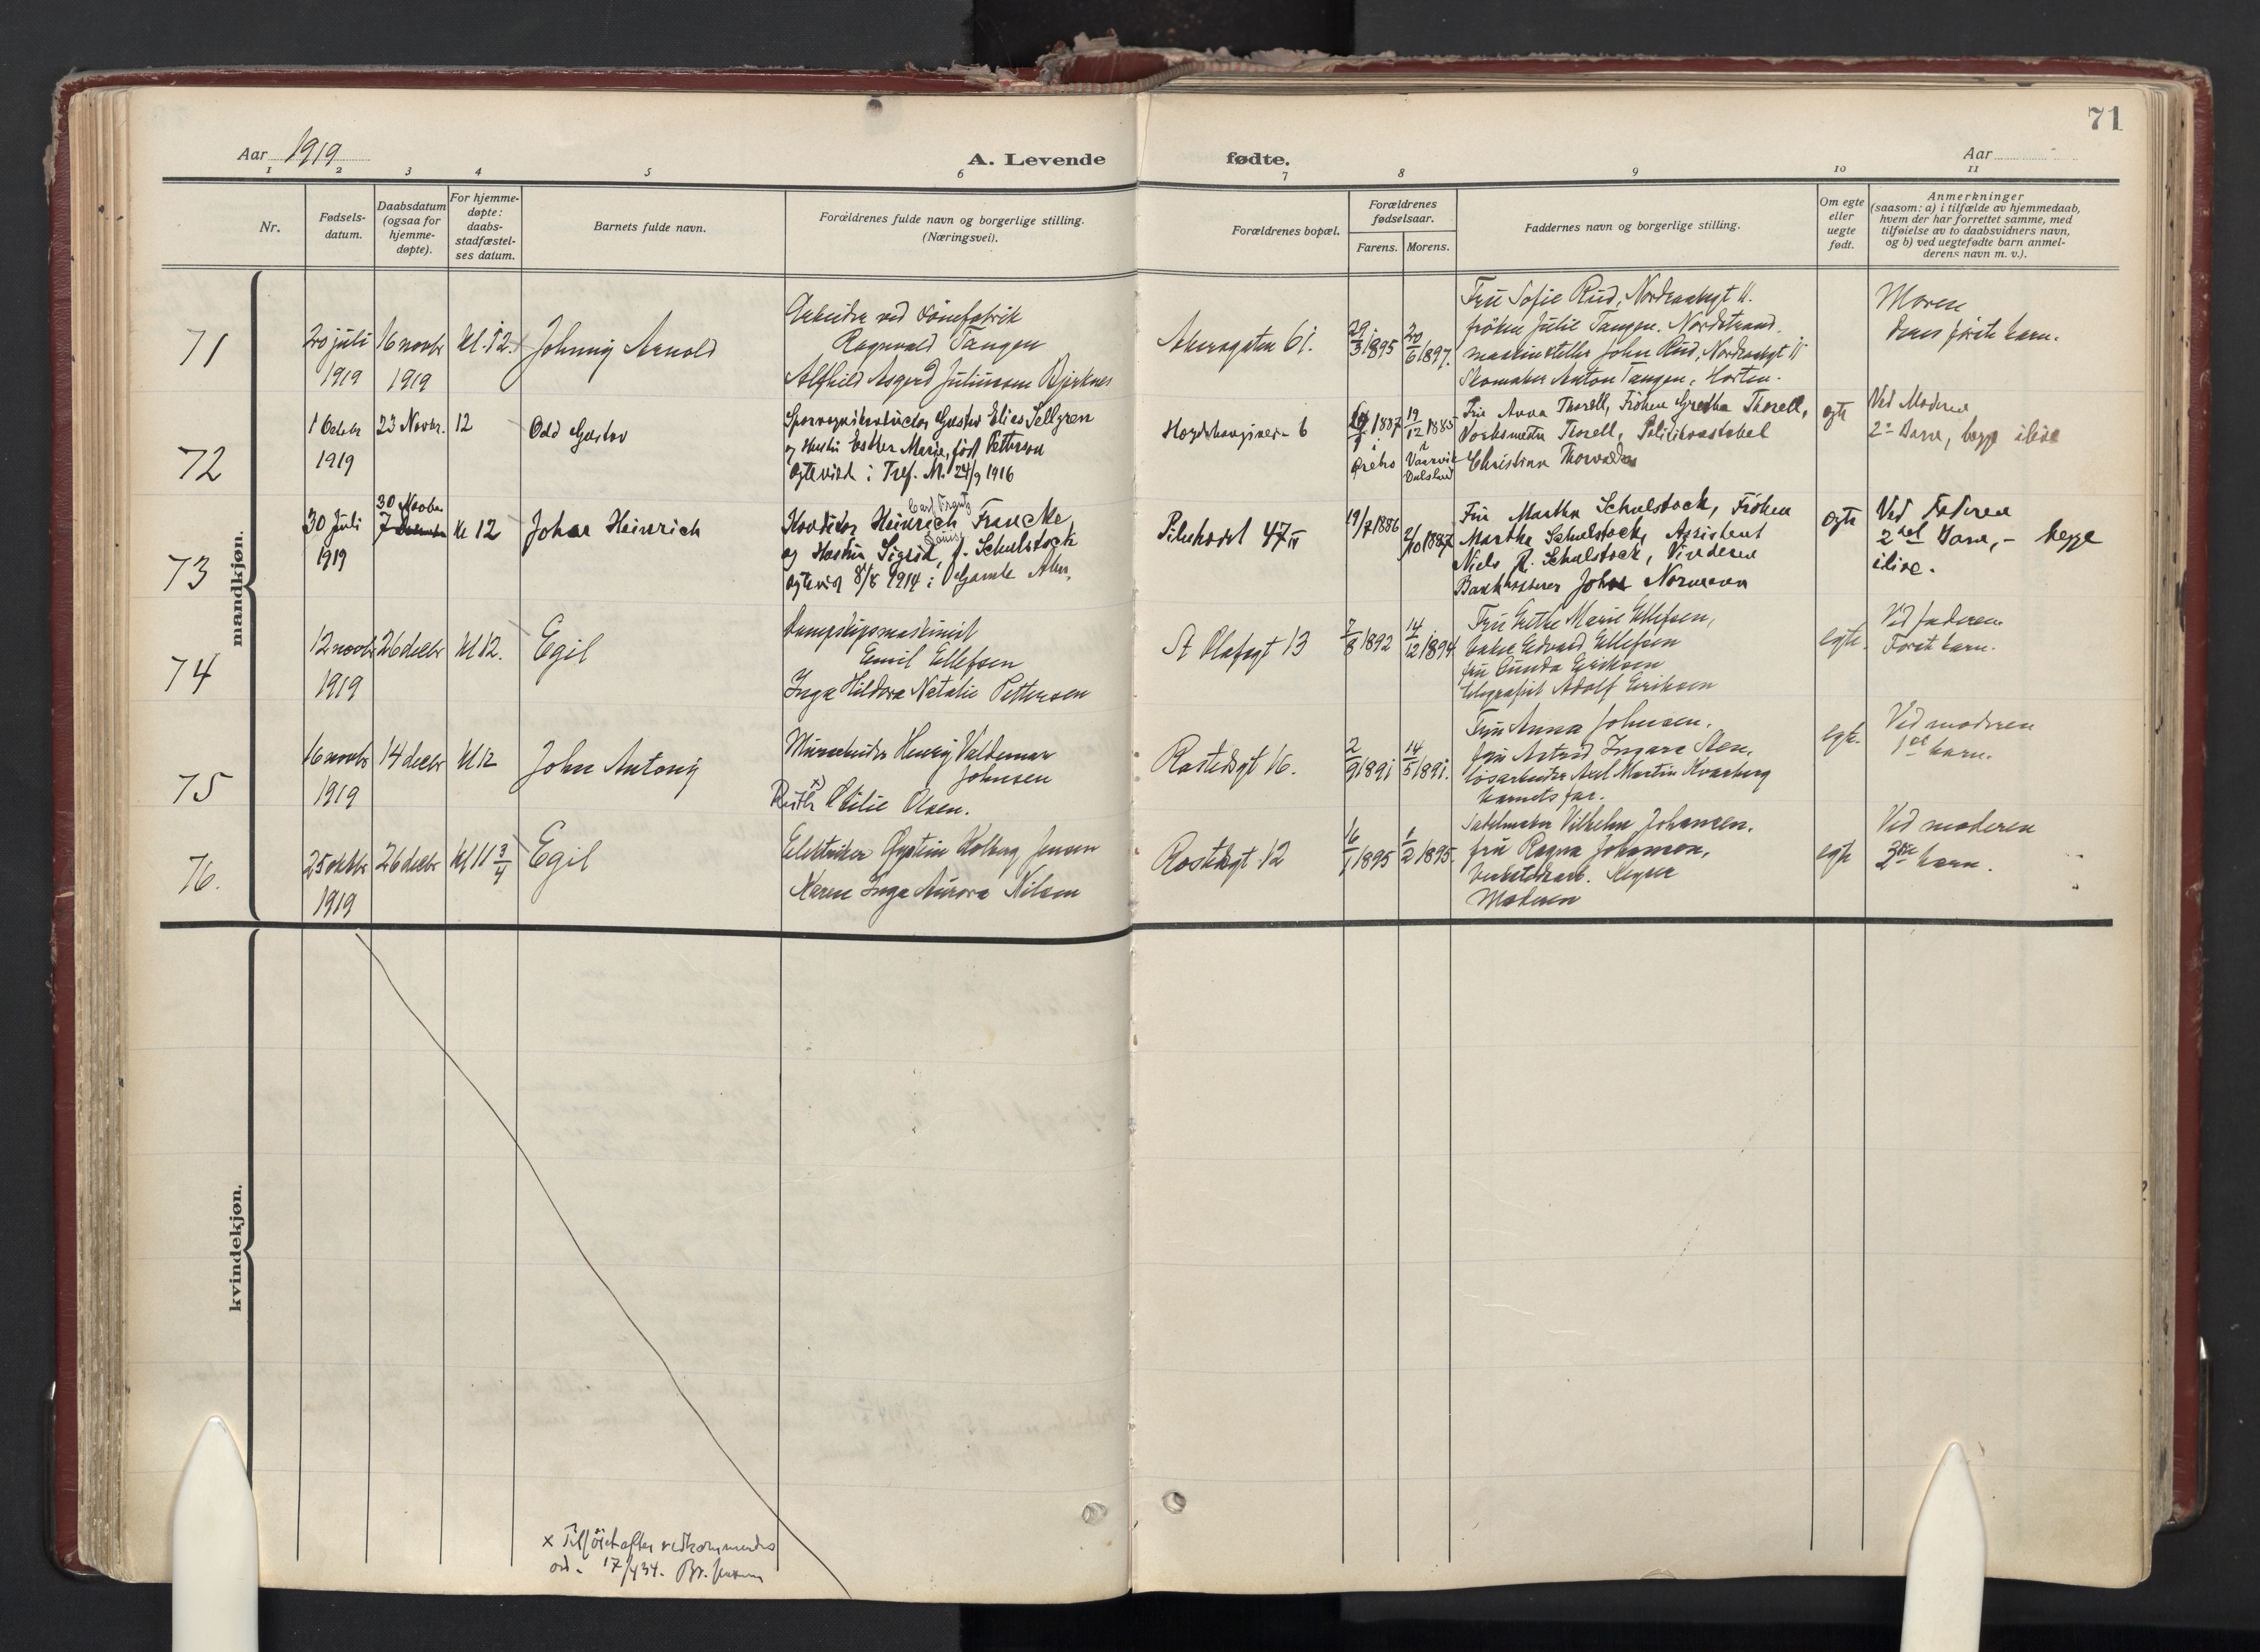 71
Aar 1919
A. Levende
fødte.
Aar
1 2 3 4 5 6 7 8 9 10 11
Nr.
Fødsels-
datum.
Daabsdatum
(ogsaa for
hjemme-
døpte).
For hjemme-
døpte:
daabs-
stadfæstel-
ses datum.
Barnets fulde navn.
Forældrenes fulde navn og borgerlige stilling.
(Næringsvei).
Forældrenes bopæl.
Forældrenes
fødselsaar.
Farens. Morens.
Faddernes navn og borgerlige stilling.
Om egte
eller
uegte
født.
Anmerkninger
(saasom: a) i tilfælde av hjemmedaab,
hvem der har forrettet samme, med
tilføielse av to daabsvidners navn,
og b) ved uegtefødte barn anmel-
derens navn m. v.).
mandkjøn.
71
20 juli
1919
16 novbr
1919
Kl. 12.
Johnny Arnold
Arbeider ved
Ragnvald Tangen
Alfhild Asgerd Juliussen Bjerknes
Akersgaten 61.
29/3 1895
20/6 1897.
Fru Sofie Rud, 
frøken Julie Tangen. Nordstrand.
John Rud,
Skomaker Anton Tangen, Horten.
Moren
deres første barn.
72
1 Octobr
1919
23 Novbr.
12
Odd Gustav
Gustav Elias Sellgren
og Hustru Esther Marie, født Petterson
Egteviet i Tref. M. 24/9 1916
6
1887
Örebro
19/12 1885
Fru Anna Thorell, Frøken Gretha Thorell,
Thorell, Politikonstabel
Christian
egte
Ved Moderen
2 Barn, begge ilive
73
30 Juli
1919
30 Novbr
7
Kl 12
Johan Heinrich
Carl Frantz
Konditor Heinrich Francke
Louise
og Hustru Sigrid, f. Schulstock
egteviet 8/8 1914 i Gamle Aker.
Pilestrædet 47 IV
19/7 1886
2/10 1887
Fru Martha Schulstock, Frøken
Marthe Schulstock, Assistent
Niels R. Schulstock, Vinderen
Bankkasserer Johan Normann
egte
Ved Faderen
2 Barn, - begge
ilive.
74
12 novbr
1919
26 decbr
Kl 12.
Egil
Dampskipsmaskinist
Emil Ellefsen
Inga Hildora Natalie Pettersen
St Olafsgt 13
7/8 1892
14/12 1894
Fru Grethe Marie Ellefsen,
baker Edvard Ellefsen
fru Gunda Eriksen
telegrafist Adolf Eriksen
egte.
Ved faderen
Første barn.
75
16 novbr
1919
14 decbr
Kl 12
John Antony
Murarbeider Henry Valdemar
Johnsen
x)
Ruth Otilie Olsen.
Rostedsgt 16.
2/9 1891
14/5 1891.
Fru Anna Johnsen.
fru Astrid Ingara Sten.
løsarbeider Axel Martin Kvarberg
barnets far.
egte.
Ved moderen
1ste barn.
76.
25 oktbr
1919
26 decbr
Kl 11 3/4
Egil
Elektriker Øystein Kolberg Jensen
Karen Inga Aurora Nilsen
Rostedsgt 12
16/1 1895
1/2 1895.
Sadelmaker Vilhelm Johansen.
fru Ragna Johansen,
Verkstedsarb. Keyser
Moderen
egte
Ved moderen
2det barn.
kvindekjøn.
x Tilføiet efter vedkommendes
17/4 34.